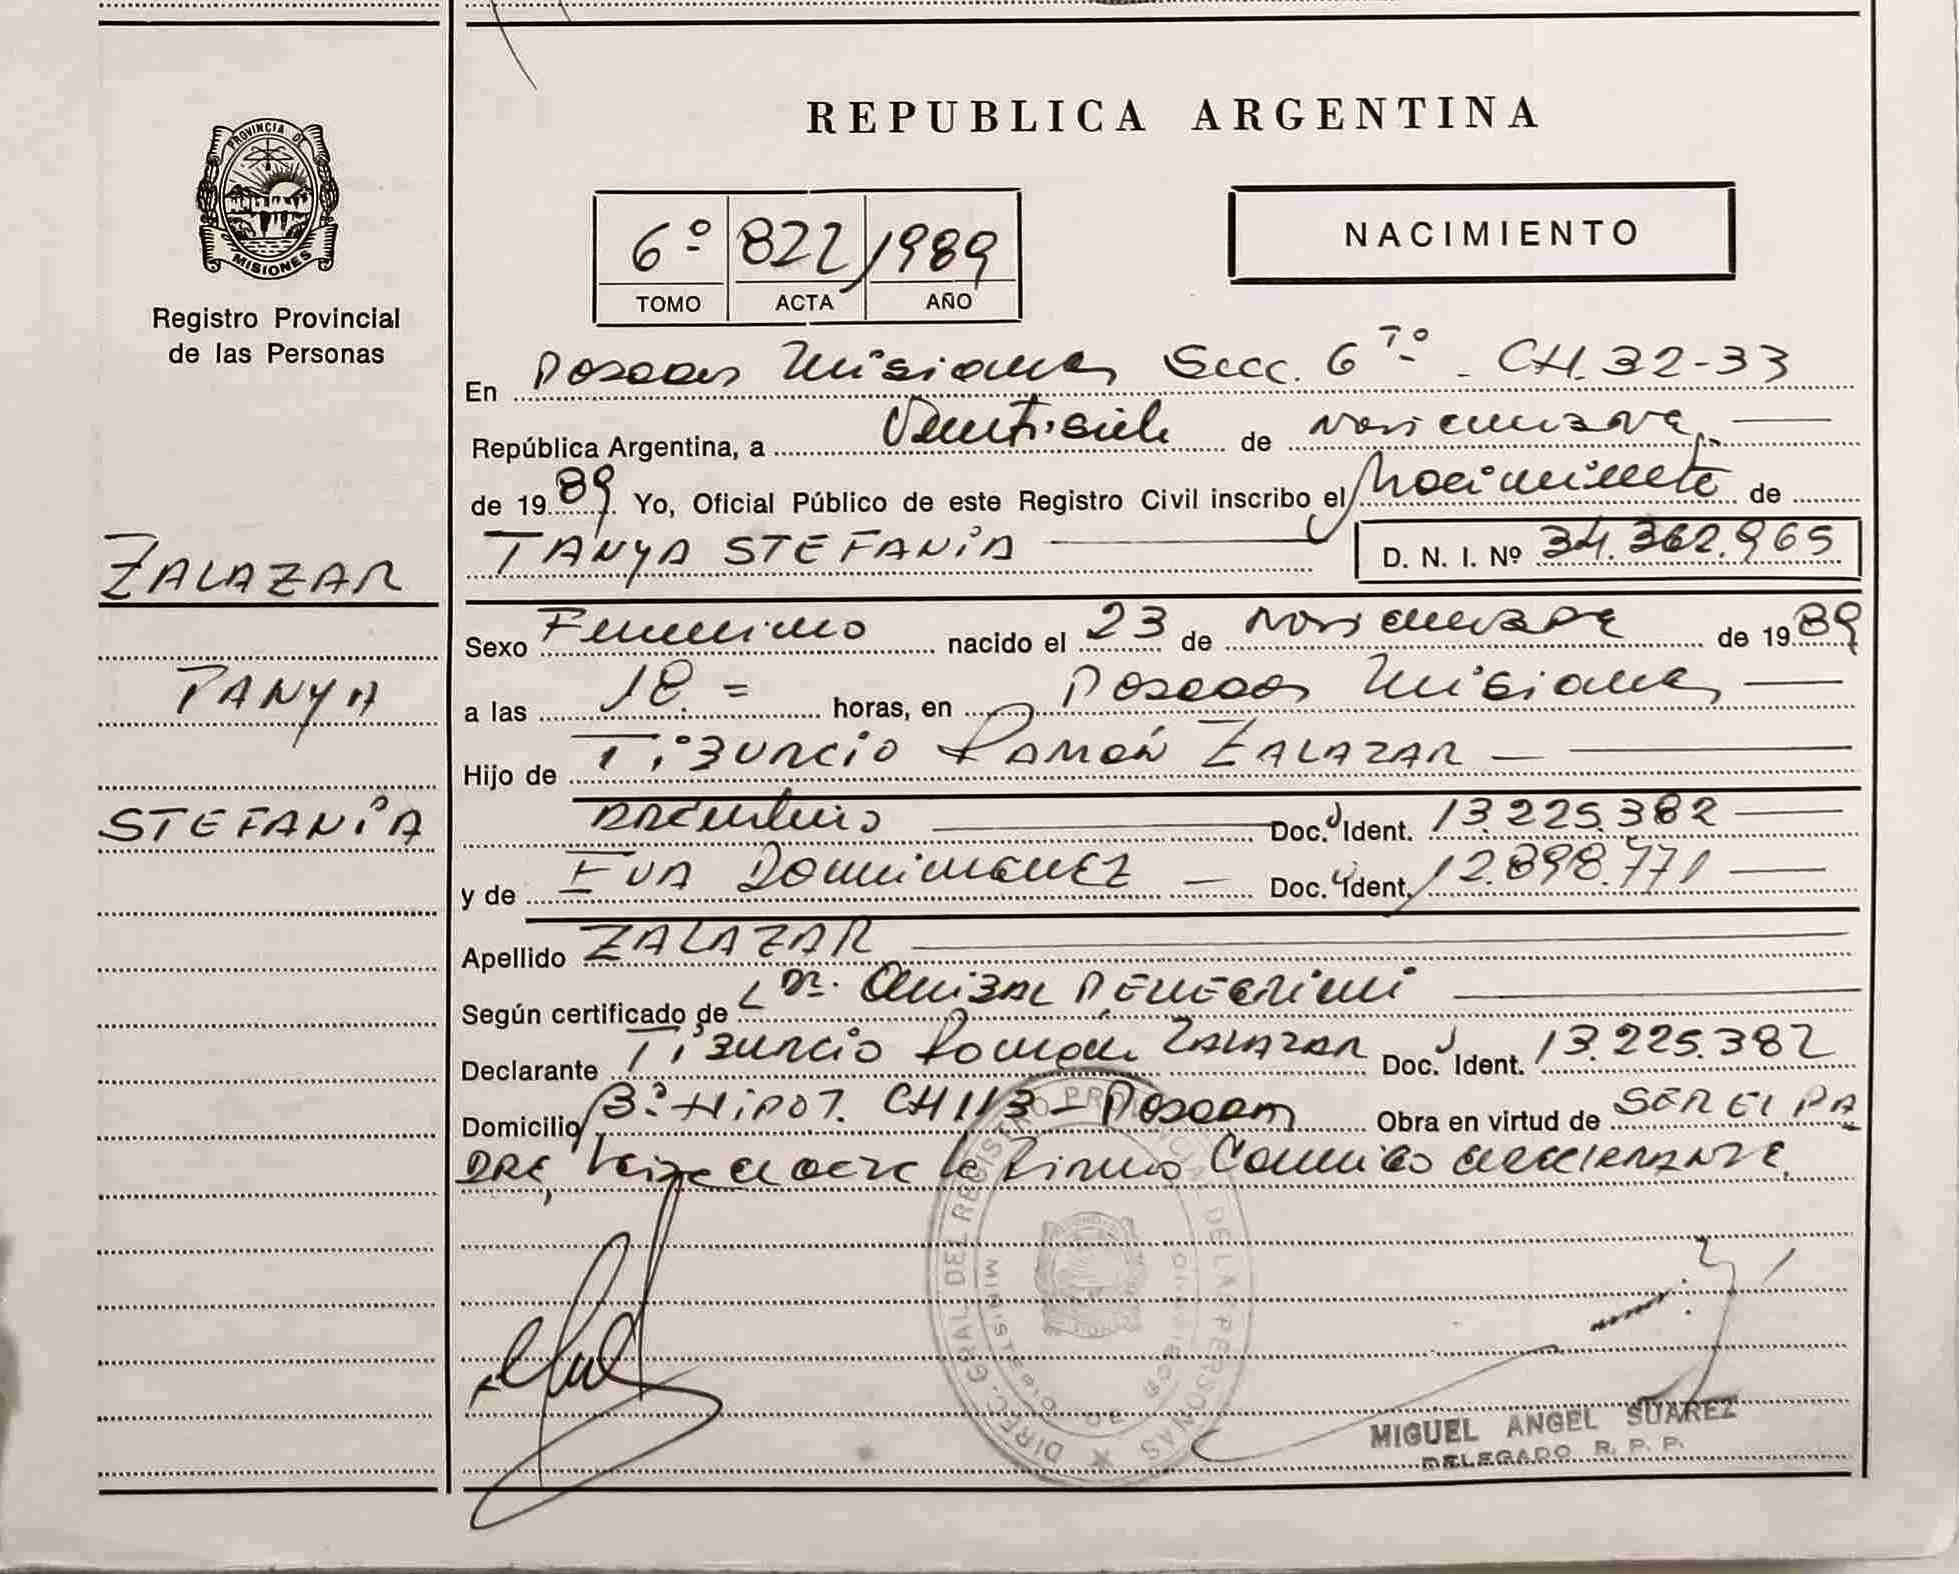 REPUBLICA ARGENTINA
PROVINCIA DE
MISIONES
Registro Provincial
de las Personas
6º 822 1989
TOMO ACTA AÑO
NACIMIENTO
En Posadas Misiones Secc. 6ta. CH. 32-33
República Argentina, a Veintisiete de noviembre
de 1989 Yo, Oficial Público de este Registro Civil inscribo el Nacimiento de
TANYA STEFANÍA D. N. I. Nº 34.362.965
ZALAZAR
TANYA
STEFANÍA
Sexo Femenino nacido el 23 de noviembre de 1989
a las 18.= horas, en Posadas Misiones
Hijo de Tiburcio Ramón ZALAZAR
argentino Doc. Ident. 13.225.382
y de EVA DOMINGUEZ Doc. Ident. 12.898.771
Apellido ZALAZAR
Según certificado de Dr. Anibal
Declarante Tiburcio Ramón ZALAZAR Doc. Ident. 13.225.382
Domicilio Bº HIPOT. CH 113 - Posadas Obra en virtud de SER EL PA
DRE, el acta la Firma Conmigo
DIREC. GRAL. DEL REGISTRO PROVINCIAL DE LAS PERSONAS
MIGUEL ANGEL SUAREZ
DELEGADO R. P. P.